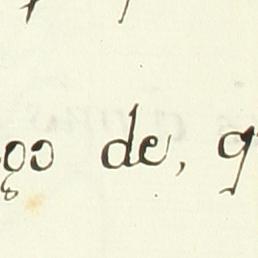 go de, q